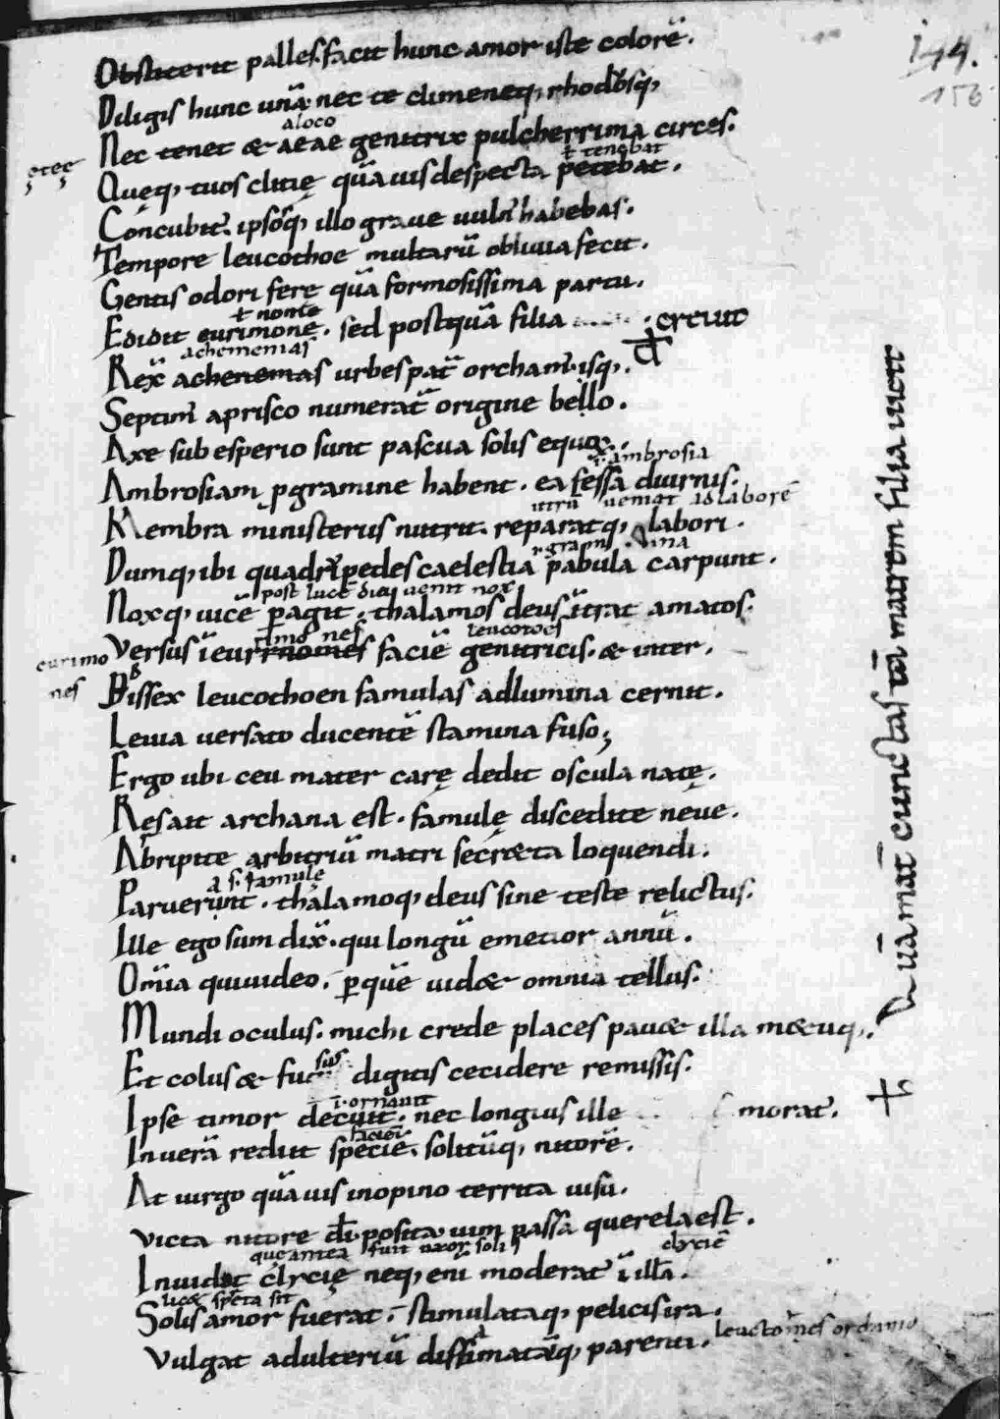 144.
156
Obstiterit palles. facit hunc amor iste colorē.
Diligis hunc unā. nec te climeneq, rhodosq,
a loco
Nec tenet & aeae genitrix pulcherrima circes.
ł tenebat
Quęq, tuos clitię quāuis despecta petebat.
Concubit᷒. ipsoq, illo graue uuln᷒ habebas.
Tempore leucothoe multarū obliuia fecit.
Gentis odori fere quā formosissima partu.
ł nome
Edidit eurimone. sed postquā filia creuit
achemenias
Rex̄ achenemas urbes pat̄ orcham᷒. isq,.
Septim᷒ a prisco numerat̄ origine bello.
Axe sub esperio sunt pascua solis equoꝝ.
ambrosia
Ambrosiam ꝑ gramine habent. ea fessa diurnis.
ueniat ad laborē
Membra ministeriis nutrit. reparatq, labori.
Dumq, ibi quadripedes caelestia pabula carpunt.
post lucē diei uenit nox
Noxq, uicē peragit. thalamos deus īt̄rat amatos.
leucotoes
eurimo
nes
Versus ī eurinomes faciē genitricis. & inter.
Bissex leucothoen famulas ad lumina cernit.
Leuia uersato ducentē stamina fuso;
Ergo ubi ceu mater carę dedit oscula natę.
Res ait archana est. famulę discedite neue.
Abripite arbitriū matri secr&a loquendi.
s. famule
Paruerunt. thalamoq, deus sine teste relictus.
Ille ego sum dix̄. qui longū emetior annū.
Om̄ia qui uideo. perquē uid& omnia tellus.
Mundi oculus. michi crede places pau& illa m&uq,.
sus
Et colus & fu digitis cecidere remissis.
i. ornauit
Ipse timor decuit. nec longius ille morat᷒.
faciem
In uerā rediit speciē. solitūq, nitorē.
At uirgo quāuis inopino territa uisu.
Victa nitore dī. posita uim passa querela est.
que antea fuit uxor solis
clyciē
Inuidit clycię neq, enī moderat᷒ ī illa.
lic& spreta sit
Solis amor fuerat. stimulataq, pelicis ira.
Vulgat adulteriū diffamatāq, parenti.
Quā mat̄ cunctas tā matrem filia uicit